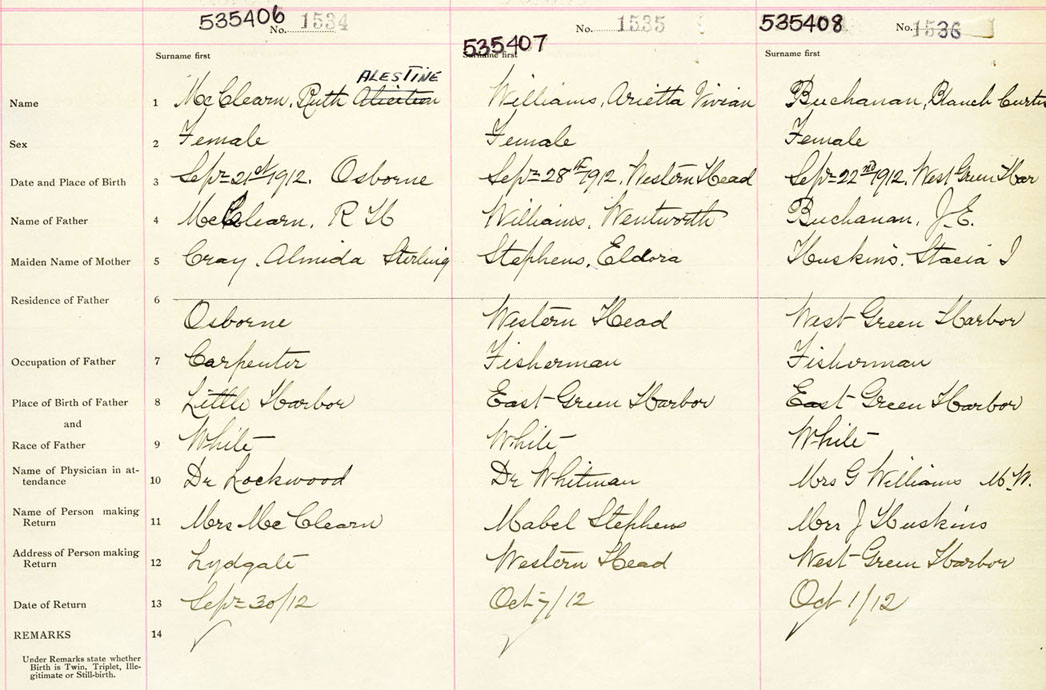 535406 No. 1534 No. 1535 535408 No. 1536
535407
Surname first Surname first Surname first
ALESTINE
Name 1 McClearn, Ruth Williams, Arietta Vivian Buchanan, Blanch Curtis
Sex 2 Female Female Female
Date and Place of Birth 3 Sept 21st/1912. Osborne Sept 28th/1912. Western Head Sept 22nd/1912. West Green Har
Name of Father 4 McClearn, R H Williams, Wentworth Buchanan, J. E.
Maiden Name of Mother 5 Cray, Almida Sterling Stephens, Eldora Huskins, Stacia I
Residence of Father 6
Osborne Western Head West Green Harbor
Occupation of Father 7 Carpenter Fisherman Fisherman
Place of Birth of Father 8 Little Harbor East Green Harbor East Green Harbor
and
Race of Father 9 White White White
Name of Physician in at-
tendance 10 Dr Lockwood Dr Whitman Mrs G Williams M.W.
Name of Person making
Return 11 Mrs McClearn Mabel Stephens Mrs J Huskins
Address of Person making
Return 12 Lydgate Western Head West Green Harbor
Date of Return 13 Sept 30/12 Oct 7/12 Oct 1/12
REMARKS 14
Under Remarks state whether
Birth is Twin, Triplet, Ille-
gitimate or Still-birth.